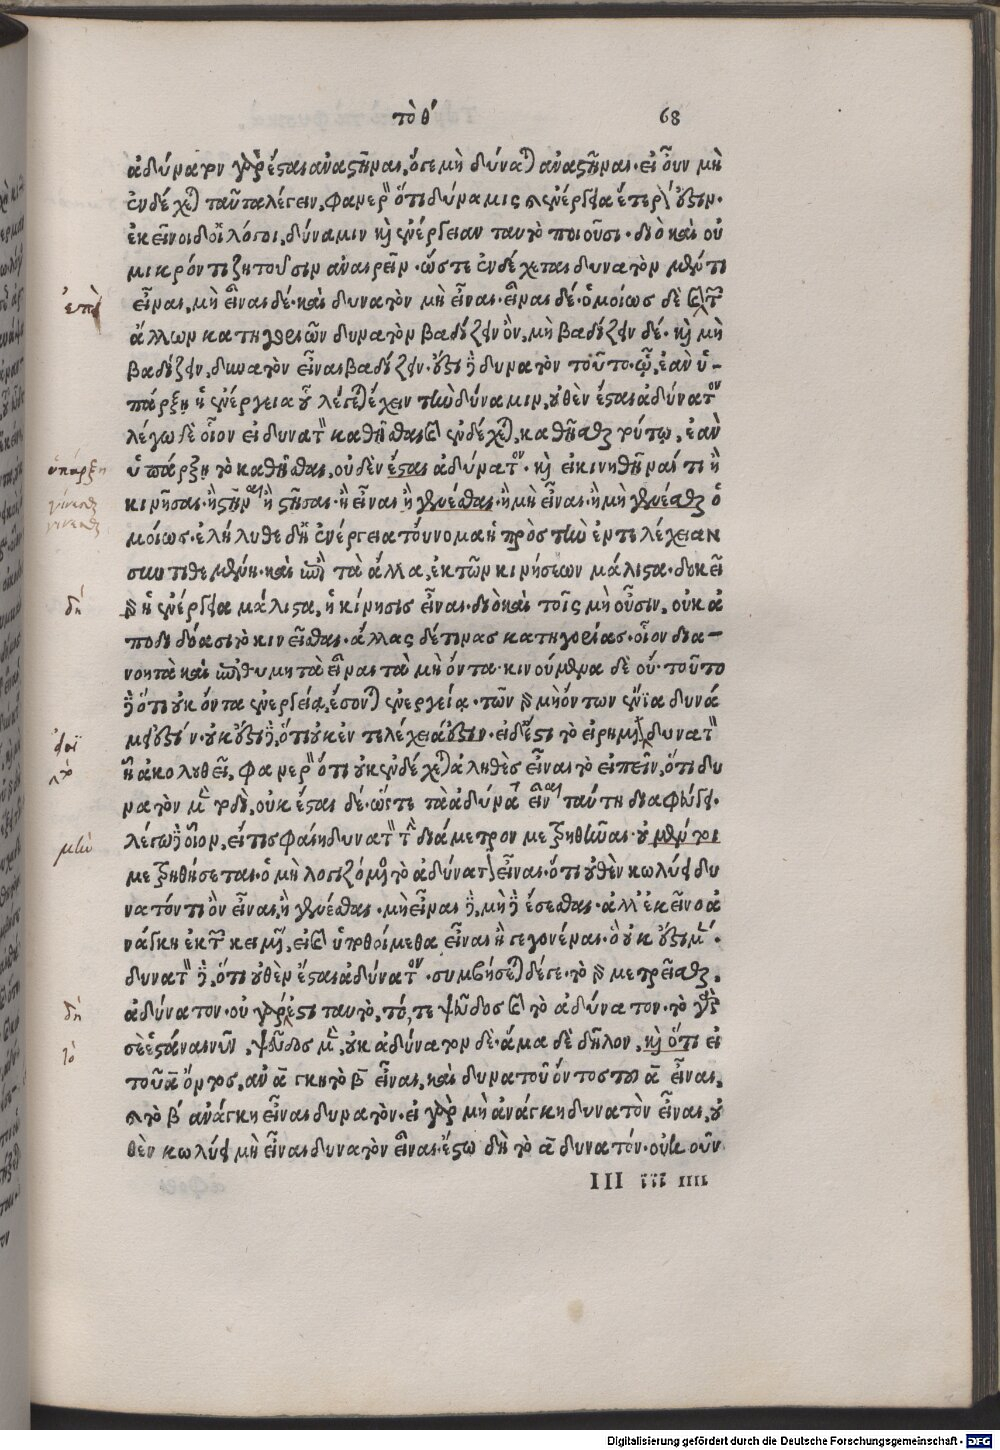 τὸ θ΄ 68
ἀδύνατον γὰρ ἔσται ἀναστῆναι, ὅ γε μὴ δύναται ἀναστῆναι· εἰ οὖν μὴ
ἐνδέχεται ταῦτα λέγειν, φανερὸν ὅτι δύναμις καὶ ἐνέργεια ἕτερόν ἐστιν·
ἐκεῖνοι δ' οἱ λόγοι, δύναμιν καὶ ἐνέργειαν ταὐτὸ ποιοῦσι· διὸ καὶ οὐ
μικρόν τι ζητοῦσιν ἀναιρεῖν· ὥστε ἐνδέχεται δυνατὸν μέν τι
ἐπὶ εἶναι, μὴ εἶναι δέ· καὶ δυνατὸν μὴ εἶναι· εἶναι δέ· ὁμοίως δὲ καὶ τῶν
ἄλλων κατηγοριῶν δυνατὸν βαδίζειν ὂν, μὴ βαδίζειν δέ· καὶ μὴ
βαδίζειν, δυνατὸν εἶναι βαδίζειν· ἔστι δὲ δυνατὸν τοῦτο· ᾧ, ἐὰν ὑ-
πάρξῃ ἡ ἐνέργεια οὗ λέγεται ἔχειν τὴν δύναμιν, οὐθὲν ἔσται ἀδύνατον
λέγω δὲ οἷον εἰ δυνατὸν καθῆσθαι καὶ ἐνδέχεται, καθῆσθαι τούτῳ, ἐὰν
ὑπάρξη ὑπάρξῃ τὸ καθῆσθαι, οὐδὲν ἔσται ἀδύνατον· καὶ εἰ κινηθῆναί τι ἢ
γίνεσθαι κινῆσαι· ἢ στῆναι ἢ στῆσαι· ἢ εἶναι ἢ γενέσθαι· ἢ μὴ εἶναι· ἢ μὴ γενέσθαι ὁ
γίνεσθαι μοίως· ἐλήλυθε δ' ἡ ἐνέργεια τοὔνομα ἡ πρὸς τὴν ἐντελέχειαν
συντιθεμένη· καὶ ἐπὶ τὰ ἄλλα, ἐκ τῶν κινήσεων μάλιστα· δοκεῖ
δὴ γὰρ ἡ ἐνέργεια μάλιστα, ἡ κίνησις εἶναι· διὸ καὶ τοῖς μὴ οὖσιν, οὐκ ἀ
ποδιδόασι τὸ κινεῖσθαι· ἄλλας δέ τινας κατηγορίας· οἷον δια-
νοητὰ καὶ ἐπιθυμητὰ εἶναι τὰ μὴ ὄντα· κινούμενα δὲ οὔ· τοῦτο
δὲ ὅτι οὐκ ὄντα ἐνεργείᾳ, ἔσονται ἐνεργείᾳ· τῶν γὰρ μὴ ὄντων ἔνια δυνά
μει ἐστίν· οὐκ ἔστι δὲ, ὅτι οὐκ ἐντελεχείᾳ ἐστιν· εἰ δέ ἐστι τὸ εἰρημένον δυνατὸν
ἢ ἀκολουθεῖ, φανερὸν ὅτι οὐκ ἐνδέχεται ἀληθὲς εἶναι τὸ εἰπεῖν, ὅτι δυ
νατὸν μὲν τοδὶ, οὐκ ἔσται δέ· ὥστε τὰ ἀδύνατα εἶναι ταύτῃ διαφεύγει·
λέγω δὲ οἷον, εἴ τις φαίη δυνατὸν τὴν διάμετρον μετρηθῆναι· οὐ μέντοι
μετρηθήσεται· ὁ μὴ λογιζόμενος τὸ ἀδύνατον εἶναι· ὅτι οὐθὲν κωλύει δυ
νατόν τι ὂν εἶναι, ἢ γενέσθαι· μὴ εἶναι δὲ, μὴ δὲ ἔσεσθαι· ἀλλ' ἐκεῖνο ἀ
νάγκη ἐκ τῶν κειμένων, εἰ καὶ ὑποθοίμεθα εἶναι ἢ γεγονέναι· ὃ οὐκ ἔστι μέν·
δυνατὸν δὲ, ὅτι οὐθὲν ἔσται ἀδύνατον· συμβήσεται δέ γε· τὸ γὰρ μετρεῖσθαι,
δὴ ἀδύνατον· οὐ γάρ ἐστι ταὐτὸ, τό, τε ψεῦδος καὶ τὸ ἀδύνατον· τὸ γάρ
τὸ σε ἑστάναι νῦν, ψεῦδος μὲν, οὐκ ἀδύνατον δὲ· ἅμα δὲ δῆλον, καὶ ὅτι εἰ
τοῦ α ὄντος, ἀνάγκη τὸ β εἶναι, καὶ δυνατοῦ ὄντος τοῦ α εἶναι,
καὶ τὸ β ἀνάγκη εἶναι δυνατὸν· εἰ γὰρ μὴ ἀνάγκη δυνατὸν εἶναι, οὐ
θὲν κωλύει μὴ εἶναι δυνατὸν εἶναι· ἔστω δὴ τὸ α δυνατόν· οὐκοῦν
III iii iiii
Digitalisierung gefördert durch die Deutsche Forschungsgemeinschaft - DFG